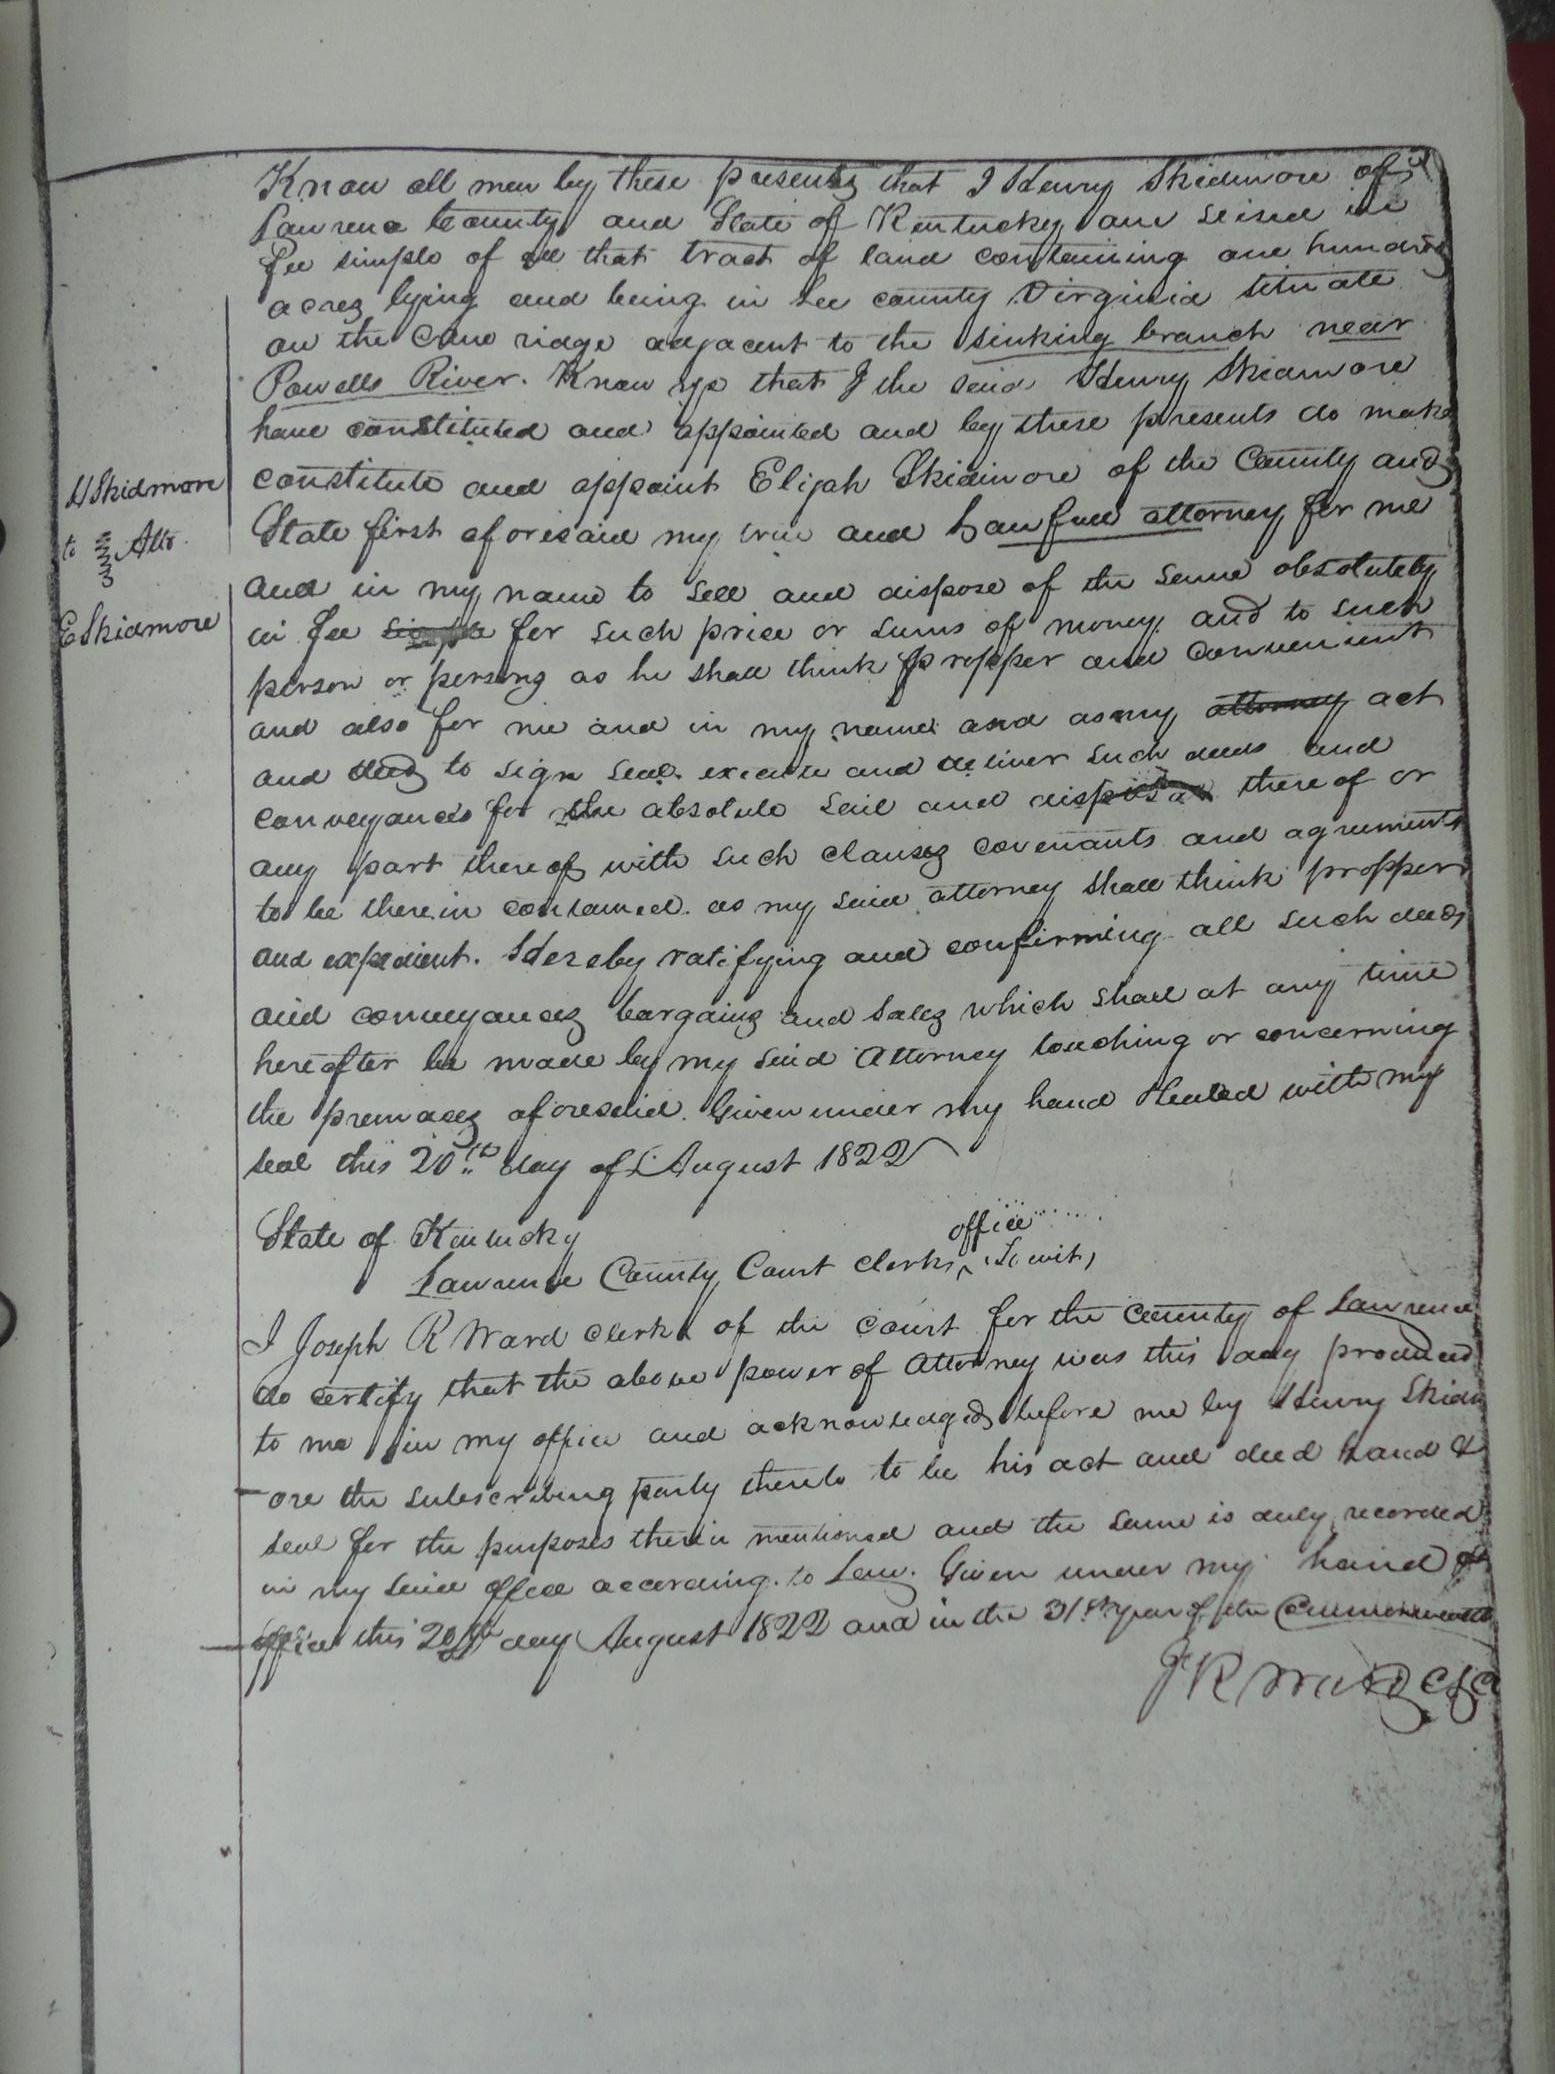 Know all men by these presents that I Henry Skidmore of
Lawrence County and State of Kentucky am seised in
fee simple of all that tract of land containing one hundred
acres lying and being in Lee county Virginia situate
on the Cane ridge adjacent to the sinking branch near
Powells River. Know ye that I the said Henry Skidmore
have constituted and appointed and by these presents do make
constitute and appoint Elijah Skidmore of the County and
State first aforesaid my true and Lawfull attorney for me
and in my name to sell and dispose of the same absolutely
in fee simple for such price or sums of money and to such
person or persons as he shall think propper and convenient
and also for me and in my name and as my attorney act
and deed to sign seal execute and deliver such deeds and
conveyances for the absolute sail and disposal thereof or
any part thereof with such clauses covenants and agreements
to be therein contained as my said attorney shall think propper
and expedient. Hereby ratifying and confirming all such deeds
and conveyances bargains and sales which shall at any time
hereafter be made by my said Attorney touching or concerning
the premases aforesaid. Given under my hand Sealed with my
seal this 20th day of August 1822
H Skidmore
to Atto.
E Skidmore
State of Kentucky
Lawrence County Court clerks office Towit,
I Joseph R Ward clerk of the court for the county of Lawrence
do certify that the above power of Attorney was this day produced
to me in my office and acknowledged before me by Henry Skidm
-ore the subscribing party thereto to be his act and deed hand &
seal for the purposes therein mentioned and the same is duly recorded
in my said office according to Law. Given under my hand of
office this 20th day August 1822 and in the 31st year of the Commonwealth
J R Ward clc